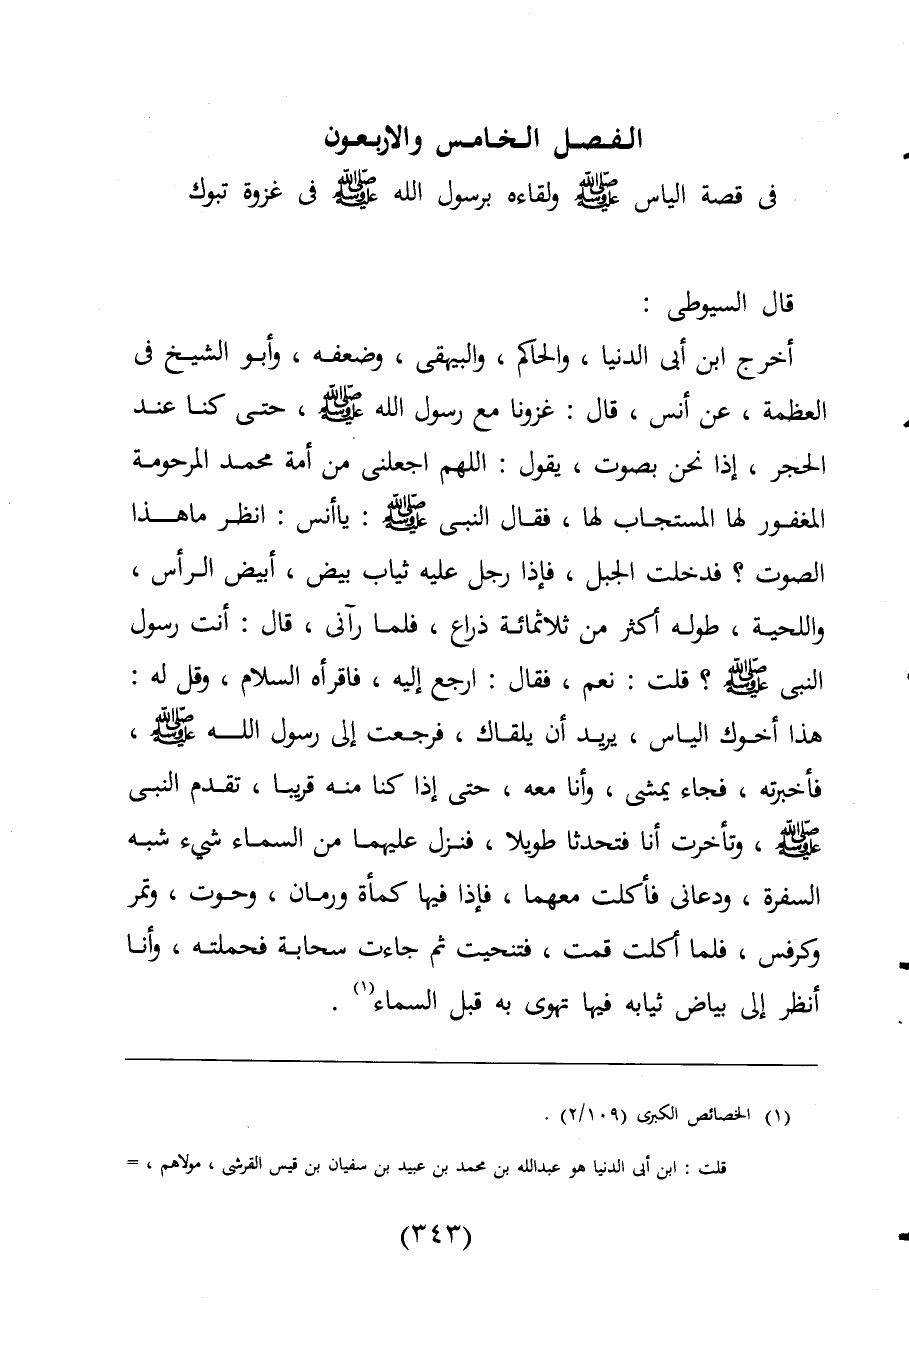 الفصل الخامس والاربعون
فى قصة الياس ﷺ ولقاءه برسول الله ﷺ فى غزوة تبوك
قال السيوطى :
أخرج ابن أبى الدنيا ، والحاكم ، والبيهقى ، وضعفه ، وأبو الشيخ فى
العظمة ، عن أنس ، قال : غزونا مع رسول الله ﷺ ، حتى كنا عند
الحجر ، إذا نحن بصوت ، يقول : اللهم اجعلنى من أمة محمد المرحومة
المغفور لها المستجاب لها ، فقال النبى ﷺ : ياأنس : انظر ماهذا
الصوت ؟ فدخلت الجبل ، فإذا رجل عليه ثياب بيض ، أبيض الرأس ،
واللحية ، طوله أكثر من ثلاثمائة ذراع ، فلما رآنى ، قال : أنت رسول
النبى ﷺ ؟ قلت : نعم ، فقال : ارجع إليه ، فاقرأه السلام ، وقل له :
هذا أخوك الياس ، يريد أن يلقاك ، فرجعت إلى رسول الله ﷺ ،
فأخبرته ، فجاء يمشى ، وأنا معه ، حتى إذا كنا منه قريبا ، تقدم النبى
ﷺ ، وتأخرت أنا فتحدثا طويلا ، فنزل عليهما من السماء شيء شبه
السفرة ، ودعانى فأكلت معهما ، فإذا فيها كمأة ورمان ، وحوت ، وتمر
وكرفس ، فلما أكلت قمت ، فتنحيت ثم جاءت سحابة فحملته ، وأنا
أنظر إلى بياض ثيابه فيها تهوى به قبل السماء(١) .
(١) الخصائص الكبرى (٢/١٠٩) .
قلت : ابن أبى الدنيا هو عبدالله بن محمد بن عبيد بن سفيان بن قيس القرشى ، مولاهم ، =
(٣٤٣)